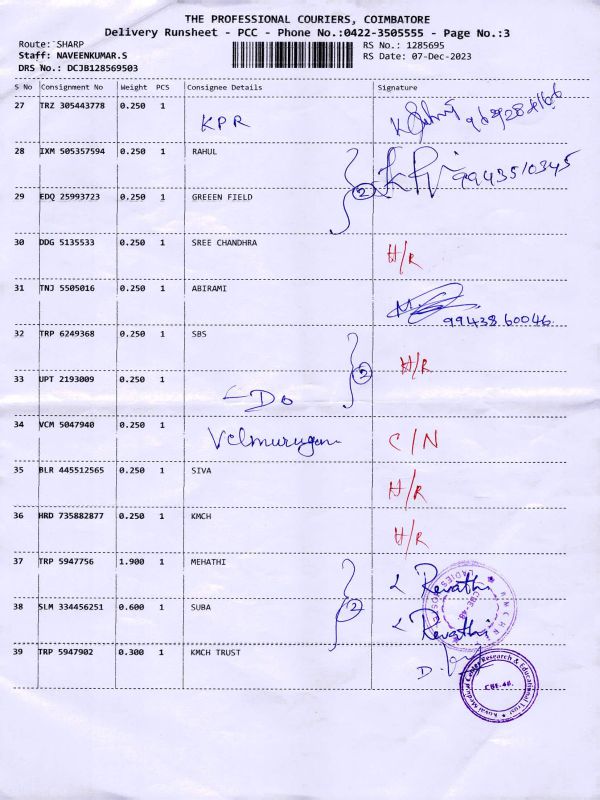 THE PROFESSIONAL COURIERS, COIMBATORE
Delivery Runsheet - PCC - Phone No.:0422-3505555 - Page No.:3
Route: SHARP RS No.: 1285695
Staff: NAVEENKUMAR.S RS Date: 07-Dec-2023
DRS No.: DCJB128569503
S No Consignment No Weight PCS Consignee Details Signature
27 TRZ 305443778 0.250 1 KPR
28 IXM 505357594 0.250 1 RAHUL 9943510345
2
29 EDQ 25993723 0.250 1 GREEEN FIELD
30 DDG 5135533 0.250 1 SREE CHANDHRA H/R
31 TNJ 5505016 0.250 1 ABIRAMI
99438 60046
32 TRP 6249368 0.250 1 SBS H/R
2
33 UPT 2193009 0.250 1 -Do
34 VCM 5047940 0.250 1 Velmurugan C/N
35 BLR 445512565 0.250 1 SIVA H/R
36 HRD 735882877 0.250 1 KMCH H/R
37 TRP 5947756 1.900 1 MEHATHI Revathi
2
38 SLM 334456251 0.600 1 SUBA Revathi
39 TRP 5947902 0.300 1 KMCH TRUST
Kovai Medical Center Research & Educational Trust
CBE-48.